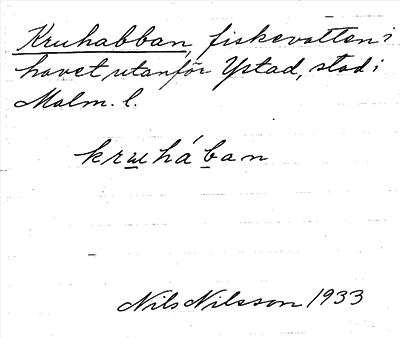 Kruhabban, fiskevatten i
havet utanför Ystad, stad i
Malm. l.
kruhában
Nils Nilsson 1933